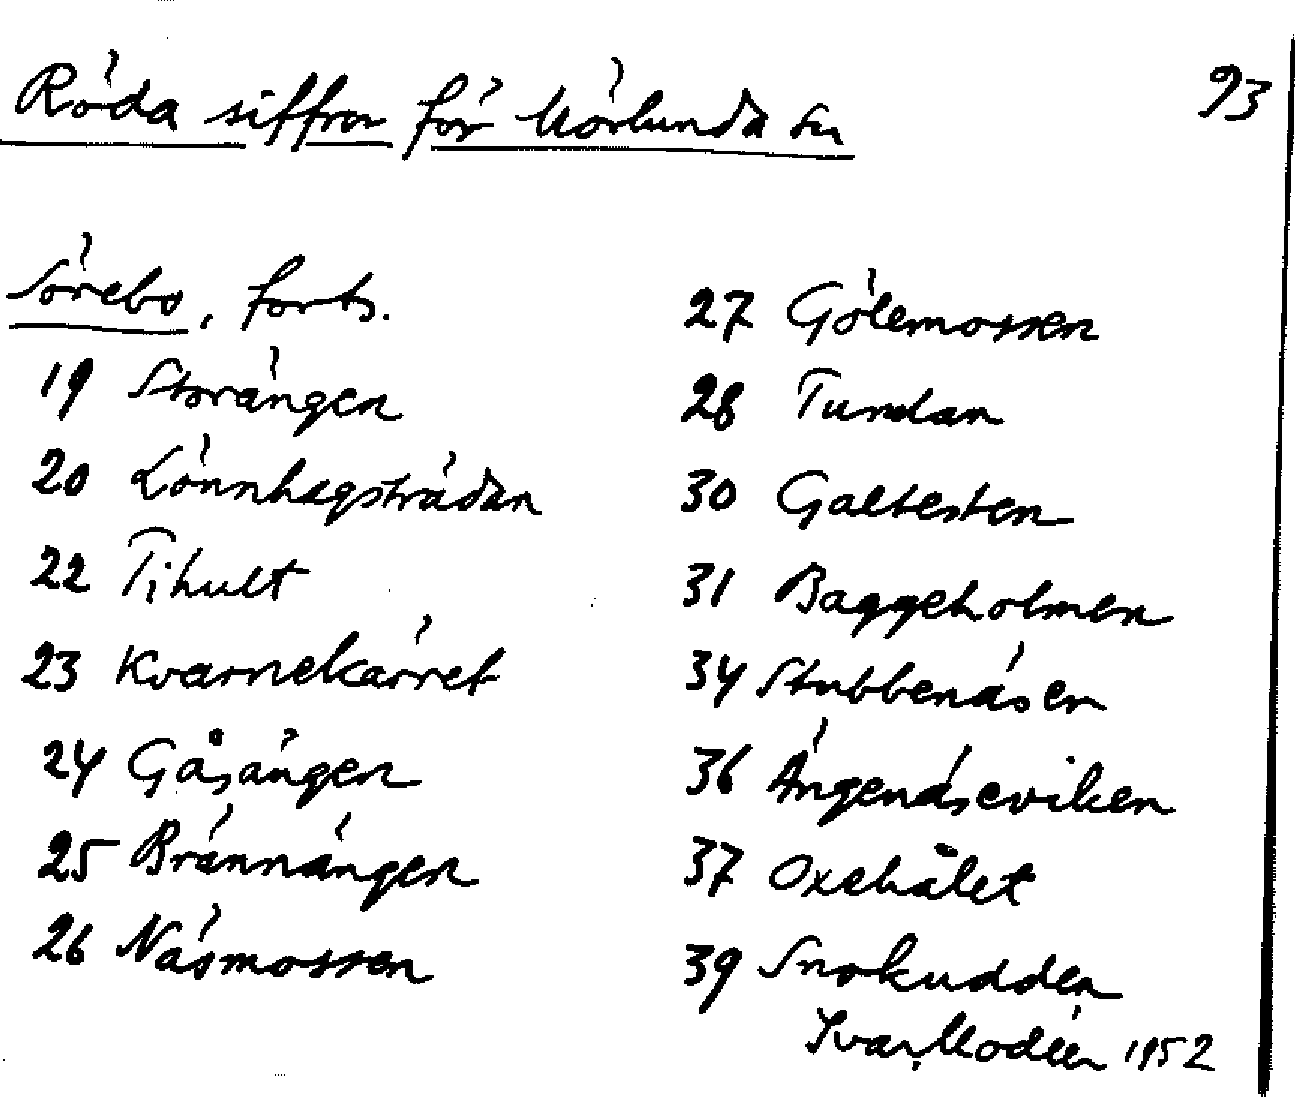 Röda siffror för Mörlunda sn
93
Sörebo, forts.
19 Storängen
20 Lönnhagsträdan
22 Tihult
23 Kvarnekärret
24 Gåsängen
25 Brännängen
26 Näsmossen
27 Gölemossen
28 Tundan
30 Galtesten
31 Baggeholmen
34 Stubbenäsen
36 Ängenäseviken
37 Oxehålet
39 Snokudden
Ivar Modéer 1952